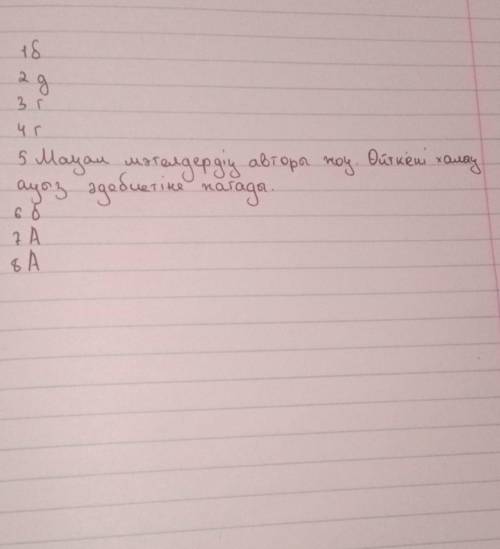 1 б
2 д
3 г
4 г
5 Мақал мәтелдердің авторы жоқ. Өйткені халық
ауыз әдебиетіне жатады.
6 б
7 А
8 А